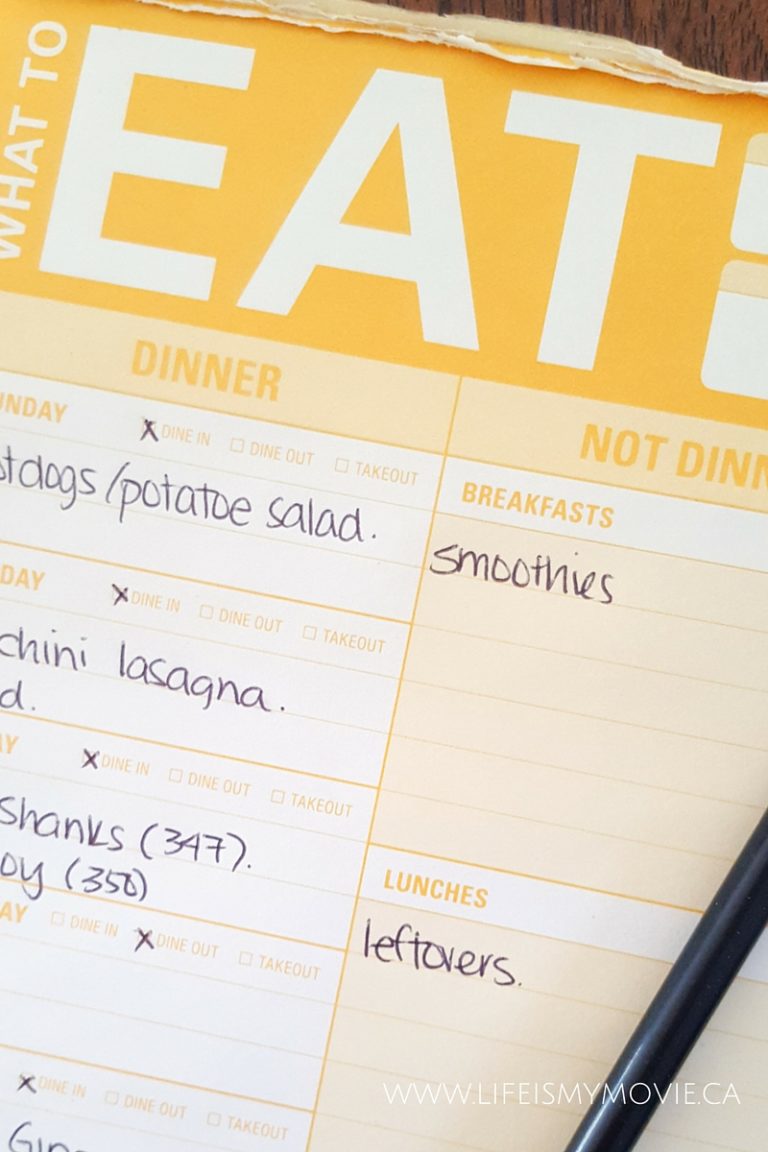 WHAT TO
EAT
DINNER
NOT DINN
UNDAY
X DINE IN ☐ DINE OUT ☐ TAKEOUT
tdogs/potatoe salad.
DAY
X DINE IN ☐ DINE OUT ☐ TAKEOUT
chini lasagna.
d.
AY
X DINE IN ☐ DINE OUT ☐ TAKEOUT
shanks (347).
oy (350)
AY ☐ DINE IN X DINE OUT ☐ TAKEOUT
X DINE IN ☐ DINE OUT ☐ TAKEOUT
BREAKFASTS
smoothies
LUNCHES
leftovers.
WWW.LIFEISMYMOVIE.CA